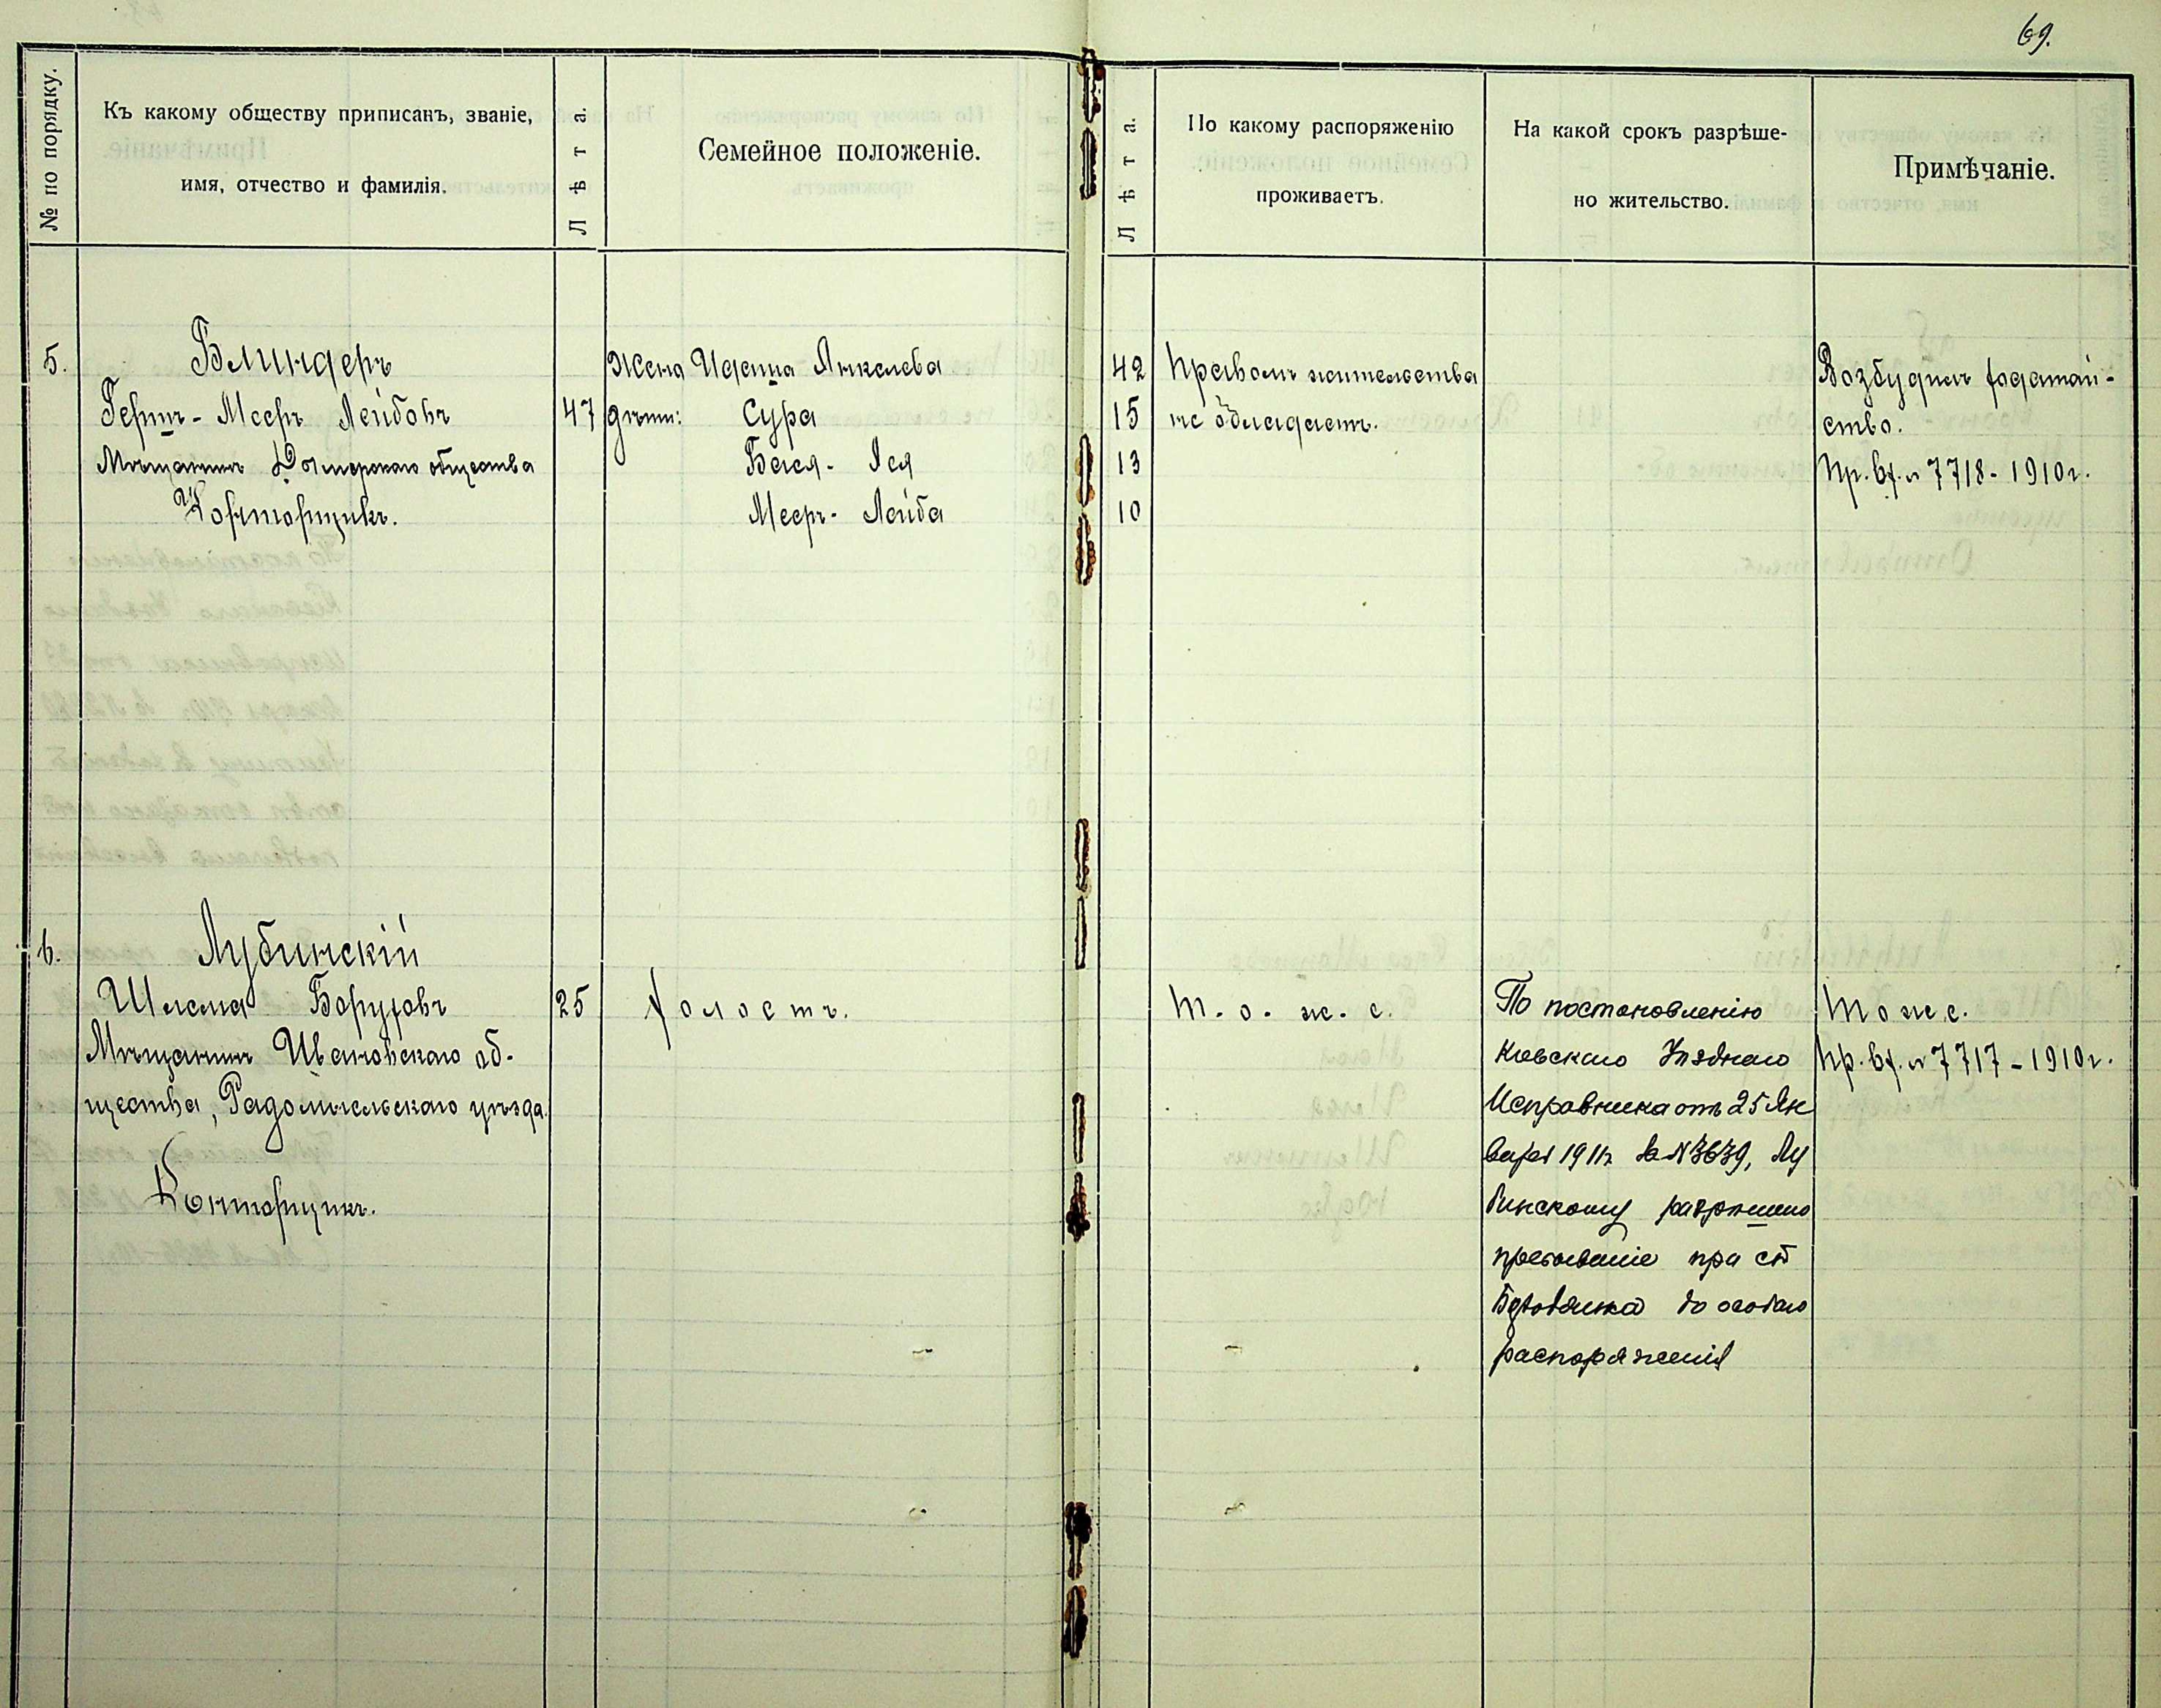 69.
№ по порядку.
Къ какому обществу приписанъ, званіе,
имя, отчество и фамилія.
Лѣта.
Семейное положеніе.
Лѣта.
По какому распоряженію
проживаетъ.
На какой срокъ разрѣше-
но жительство.
Примѣчаніе.
5.
Блиндеръ
Гершъ-Мееръ Лейбовъ
Мѣщанинъ общества
Конторщикъ.
47
Жена Янкелева
дѣти: Сура
Бася-Лея
Мееръ-Лейба
42
15
13
10
Правомъ жительства
не обладаетъ.
Возбудилъ ходатай-
ство.
Пр. вх. № 7718-1910г.
6.
Лубинскій
Шлема Боруховъ
Мѣщанинъ Ивановскаго об-
щества, Радомысльскаго уѣзда.
Конторщикъ.
25
Холостъ.
Т.о.ж.е.
По постановленію
Кіевскаго Уѣзднаго
Исправника отъ 25 Ян
варя 1911г за № 3639, Лу
бинскому разрѣшено
пребываніе при ст
до особаго
распоряженія
Тоже.
Пр. вх. № 7717-1910г.